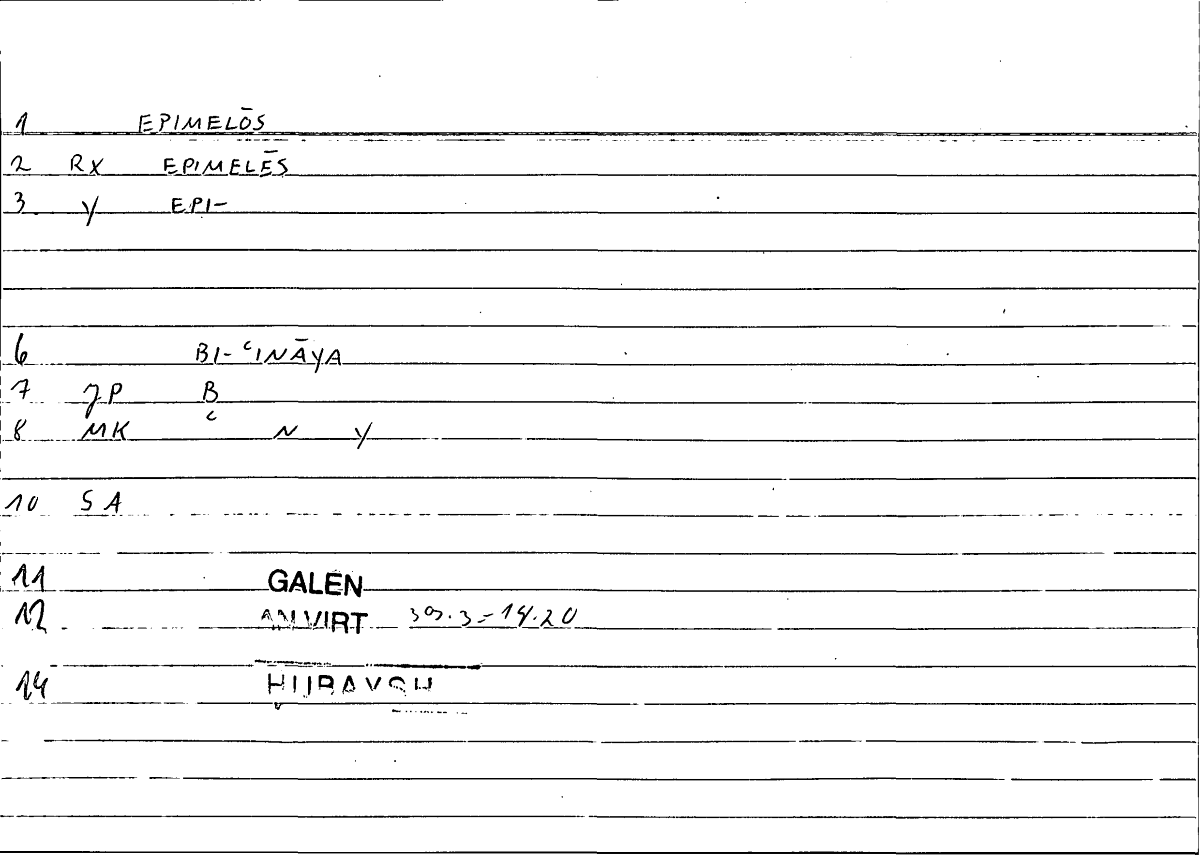 1 EPIMELŌS
2 RX EPIMELĒS
3 Y EPI-
6 BI-ʿINĀYA
7 JP B
8 MK ʿ N Y
10 SA
11 GALEN
12 AN.VIRT 14.20
14 ḤUBAYSH